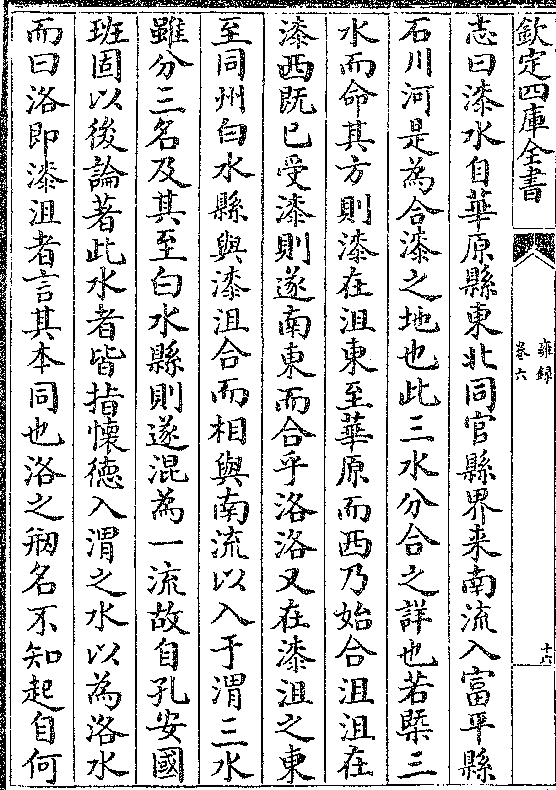 欽定四庫全書
雍録
卷六
十六
志曰漆水自華原縣東北同官縣界来南流入富平縣
石川河是為合漆之地也此三水分合之詳也若槩三
水而命其方則漆在沮東至華原而西乃始合沮沮在
漆西既已受漆則遂南東而合乎洛洛又在漆沮之東
至同州白水縣與漆沮合而相與南流以入于渭三水
雖分三名及其至白水縣則遂混為一流故自孔安國
班固以後論著此水者皆指懐徳入渭之水以為洛水
而曰洛即漆沮者言其本同也洛之稱名不知起自何